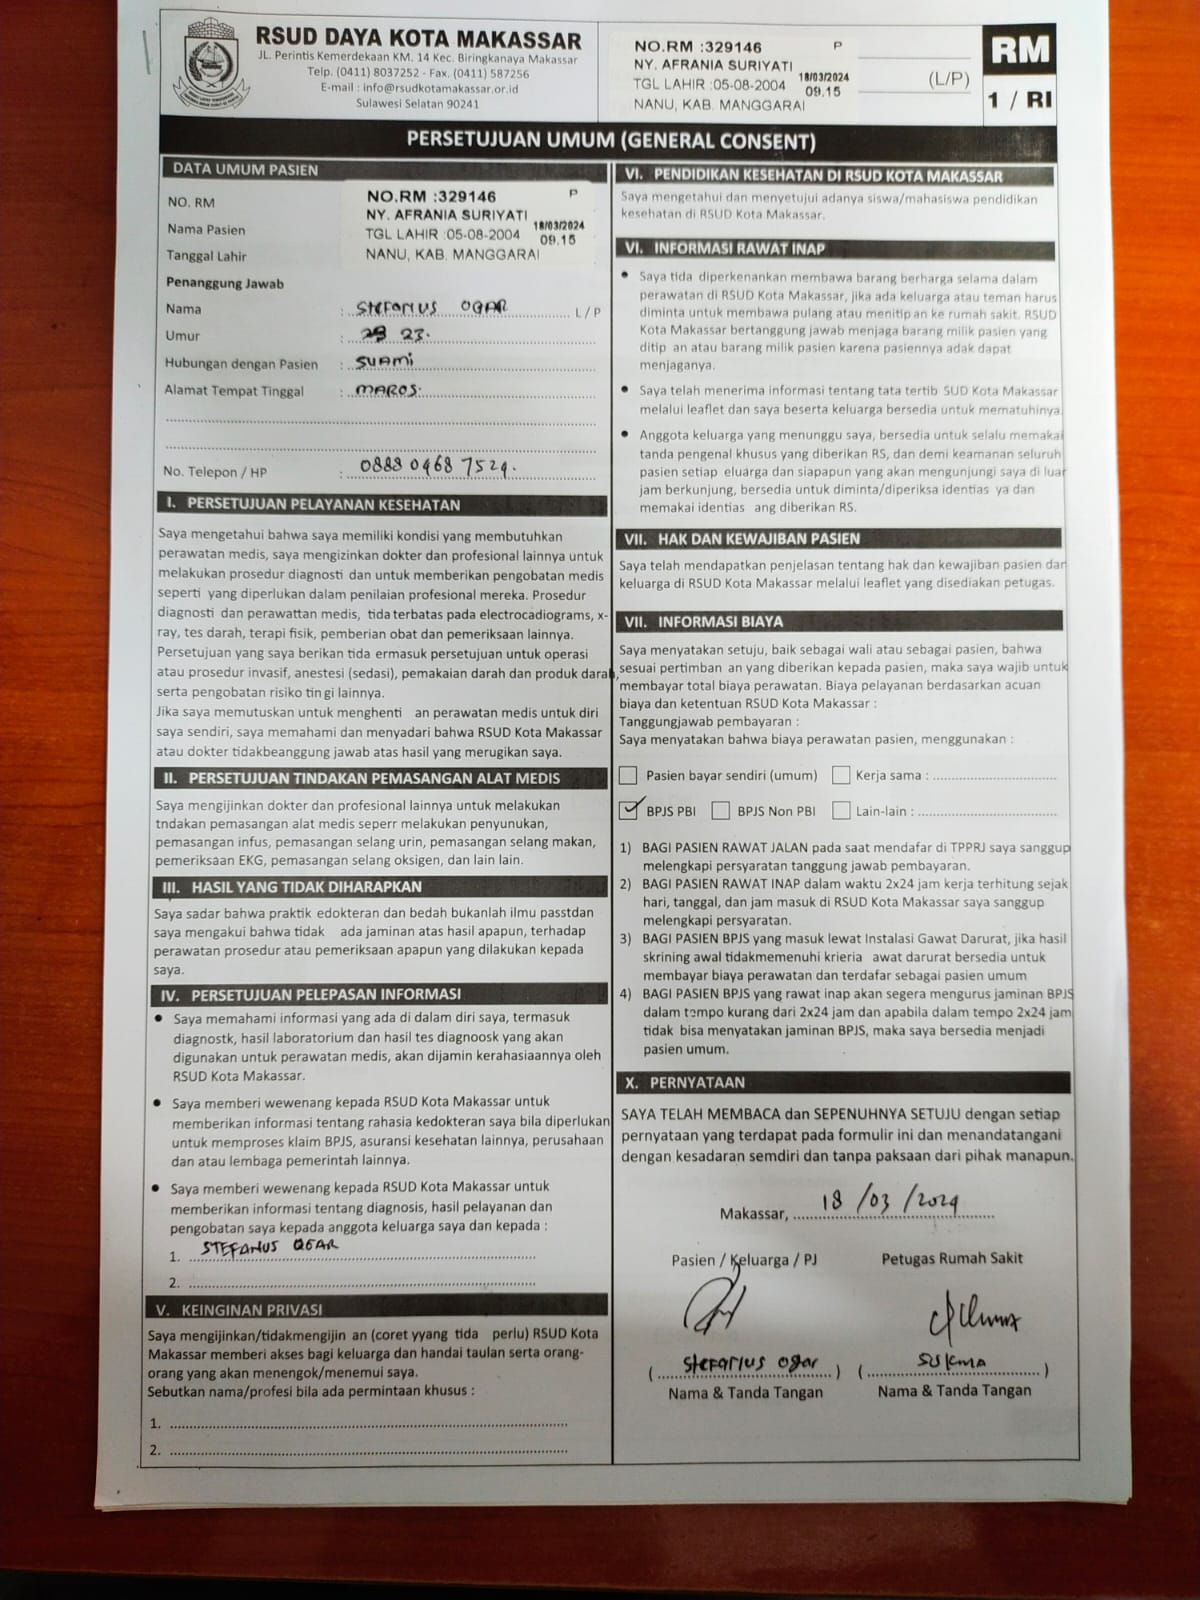 RSUD DAYA KOTA MAKASSAR
JL. Perintis Kemerdekaan KM. 14 Kec. Biringkanaya Makassar
Telp. (0411) 8037252 - Fax. (0411) 587256
E-mail : info@rsudkotamakassar.or.id
Sulawesi Selatan 90241
NO.RM :329146 P
NY. AFRANIA SURIYATI
TGL LAHIR :05-08-2004 18/03/2024 09.15
NANU, KAB. MANGGARAI
(L/P)
RM
1 / RI
PERSETUJUAN UMUM (GENERAL CONSENT)
DATA UMUM PASIEN
NO. RM
Nama Pasien
Tanggal Lahir
NO.RM :329146 P
NY. AFRANIA SURIYATI
TGL LAHIR :05-08-2004 18/03/2024 09.15
NANU, KAB. MANGGARAI
Penanggung Jawab
Nama : Stefanus Ogar L / P
Umur : 23.
Hubungan dengan Pasien : Suami
Alamat Tempat Tinggal : Maros.
No. Telepon / HP : 0888 0468 7524.
I. PERSETUJUAN PELAYANAN KESEHATAN
Saya mengetahui bahwa saya memiliki kondisi yang membutuhkan
perawatan medis, saya mengizinkan dokter dan profesional lainnya untuk
melakukan prosedur diagnosti dan untuk memberikan pengobatan medis
seperti yang diperlukan dalam penilaian profesional mereka. Prosedur
diagnosti dan perawattan medis, tida terbatas pada electrocadiograms, x-
ray, tes darah, terapi fisik, pemberian obat dan pemeriksaan lainnya.
Persetujuan yang saya berikan tida ermasuk persetujuan untuk operasi
atau prosedur invasif, anestesi (sedasi), pemakaian darah dan produk darah,
serta pengobatan risiko tin gi lainnya.
Jika saya memutuskan untuk menghenti an perawatan medis untuk diri
saya sendiri, saya memahami dan menyadari bahwa RSUD Kota Makassar
atau dokter tidakbeanggung jawab atas hasil yang merugikan saya.
II. PERSETUJUAN TINDAKAN PEMASANGAN ALAT MEDIS
Saya mengijinkan dokter dan profesional lainnya untuk melakukan
tndakan pemasangan alat medis seperr melakukan penyunukan,
pemasangan infus, pemasangan selang urin, pemasangan selang makan,
pemeriksaan EKG, pemasangan selang oksigen, dan lain lain.
III. HASIL YANG TIDAK DIHARAPKAN
Saya sadar bahwa praktik edokteran dan bedah bukanlah ilmu passtdan
saya mengakui bahwa tidak ada jaminan atas hasil apapun, terhadap
perawatan prosedur atau pemeriksaan apapun yang dilakukan kepada
saya.
IV. PERSETUJUAN PELEPASAN INFORMASI
• Saya memahami informasi yang ada di dalam diri saya, termasuk
diagnostk, hasil laboratorium dan hasil tes diagnoosk yang akan
digunakan untuk perawatan medis, akan dijamin kerahasiaannya oleh
RSUD Kota Makassar.
• Saya memberi wewenang kepada RSUD Kota Makassar untuk
memberikan informasi tentang rahasia kedokteran saya bila diperlukan
untuk memproses klaim BPJS, asuransi kesehatan lainnya, perusahaan
dan atau lembaga pemerintah lainnya.
• Saya memberi wewenang kepada RSUD Kota Makassar untuk
memberikan informasi tentang diagnosis, hasil pelayanan dan
pengobatan saya kepada anggota keluarga saya dan kepada :
1. STEFANUS OGAR
2.
V. KEINGINAN PRIVASI
Saya mengijinkan/tidakmengijin an (coret yyang tida perlu) RSUD Kota
Makassar memberi akses bagi keluarga dan handai taulan serta orang-
orang yang akan menengok/menemui saya.
Sebutkan nama/profesi bila ada permintaan khusus :
1.
2.
VI. PENDIDIKAN KESEHATAN DI RSUD KOTA MAKASSAR
Saya mengetahui dan menyetujui adanya siswa/mahasiswa pendidikan
kesehatan di RSUD Kota Makassar.
VI. INFORMASI RAWAT INAP
• Saya tida diperkenankan membawa barang berharga selama dalam
perawatan di RSUD Kota Makassar, jika ada keluarga atau teman harus
diminta untuk membawa pulang atau menitip an ke rumah sakit. RSUD
Kota Makassar bertanggung jawab menjaga barang milik pasien yang
ditip an atau barang milik pasien karena pasiennya adak dapat
menjaganya.
• Saya telah menerima informasi tentang tata tertib SUD Kota Makassar
melalui leaflet dan saya beserta keluarga bersedia untuk mematuhinya.
• Anggota keluarga yang menunggu saya, bersedia untuk selalu memakai
tanda pengenal khusus yang diberikan RS, dan demi keamanan seluruh
pasien setiap eluarga dan siapapun yang akan mengunjungi saya di luar
jam berkunjung, bersedia untuk diminta/diperiksa identias ya dan
memakai identias ang diberikan RS.
VII. HAK DAN KEWAJIBAN PASIEN
Saya telah mendapatkan penjelasan tentang hak dan kewajiban pasien dan
keluarga di RSUD Kota Makassar melalui leaflet yang disediakan petugas.
VII. INFORMASI BIAYA
Saya menyatakan setuju, baik sebagai wali atau sebagai pasien, bahwa
sesuai pertimban an yang diberikan kepada pasien, maka saya wajib untuk
membayar total biaya perawatan. Biaya pelayanan berdasarkan acuan
biaya dan ketentuan RSUD Kota Makassar :
Tanggungjawab pembayaran :
Saya menyatakan bahwa biaya perawatan pasien, menggunakan :
Pasien bayar sendiri (umum) Kerja sama :
BPJS PBI BPJS Non PBI Lain-lain :
1) BAGI PASIEN RAWAT JALAN pada saat mendafar di TPPRJ saya sanggup
melengkapi persyaratan tanggung jawab pembayaran.
2) BAGI PASIEN RAWAT INAP dalam waktu 2x24 jam kerja terhitung sejak
hari, tanggal, dan jam masuk di RSUD Kota Makassar saya sanggup
melengkapi persyaratan.
3) BAGI PASIEN BPJS yang masuk lewat Instalasi Gawat Darurat, jika hasil
skrining awal tidakmemenuhi krieria awat darurat bersedia untuk
membayar biaya perawatan dan terdafar sebagai pasien umum
4) BAGI PASIEN BPJS yang rawat inap akan segera mengurus jaminan BPJS
dalam tempo kurang dari 2x24 jam dan apabila dalam tempo 2x24 jam
tidak bisa menyatakan jaminan BPJS, maka saya bersedia menjadi
pasien umum.
X. PERNYATAAN
SAYA TELAH MEMBACA dan SEPENUHNYA SETUJU dengan setiap
pernyataan yang terdapat pada formulir ini dan menandatangani
dengan kesadaran semdiri dan tanpa paksaan dari pihak manapun.
Makassar, 18/03/2024
Pasien / Keluarga / PJ Petugas Rumah Sakit
( Stefanus Ogar ) ( SUKMA )
Nama & Tanda Tangan Nama & Tanda Tangan